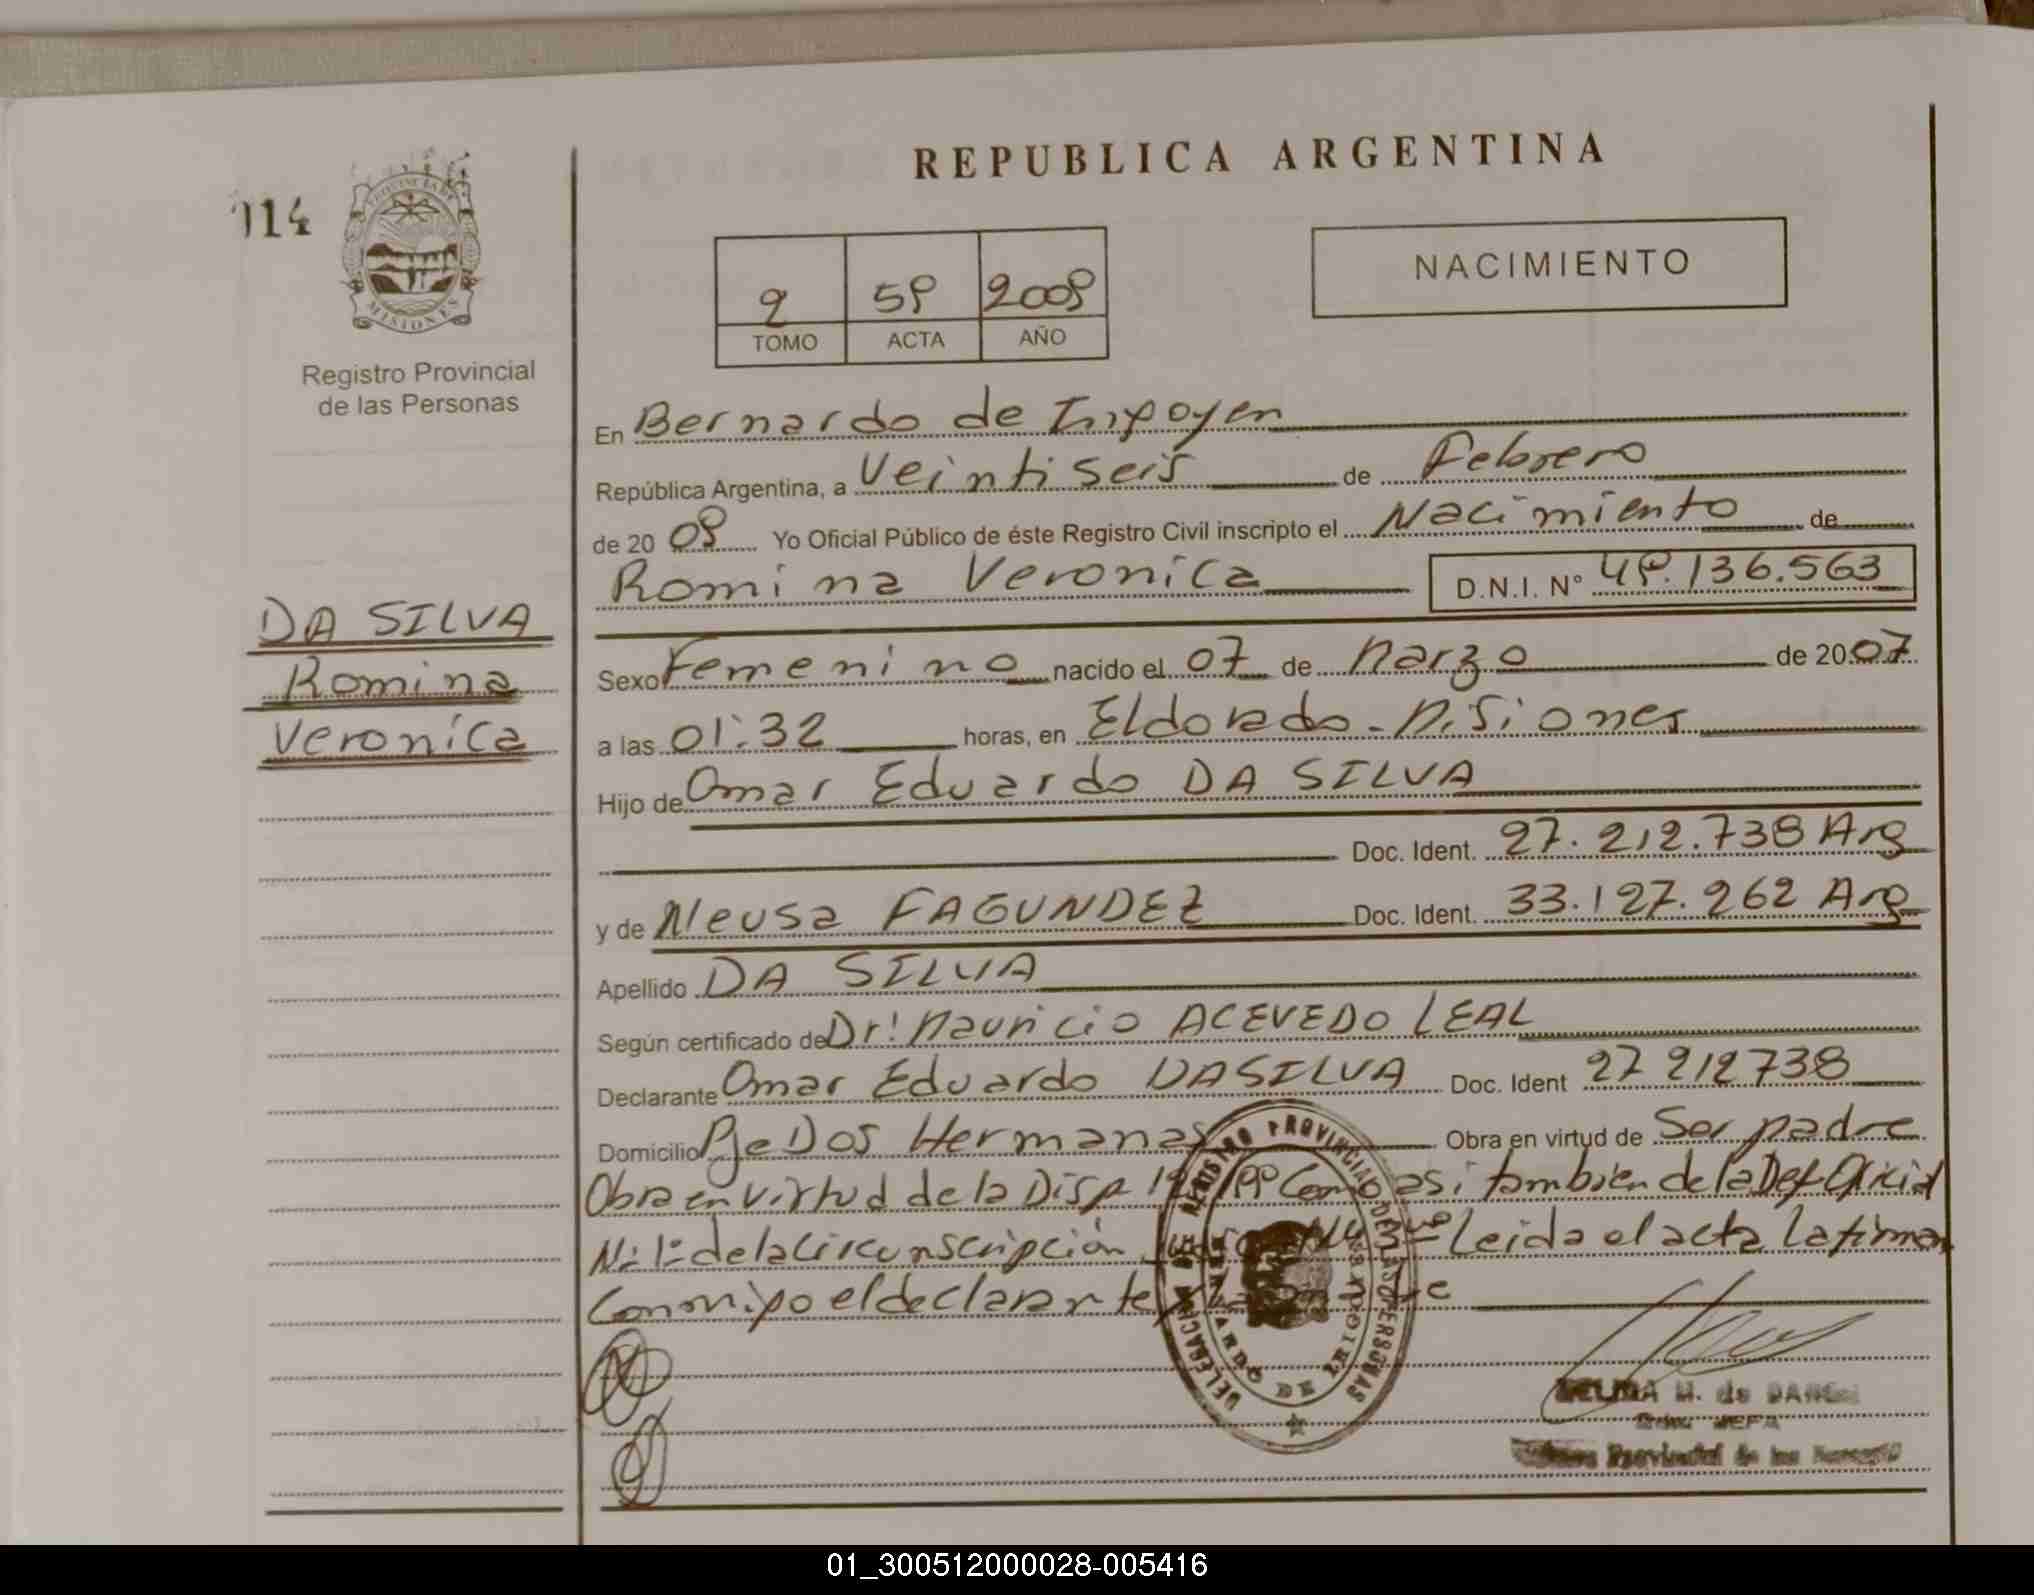 REPUBLICA ARGENTINA
114
PROVINCIA DE
MISIONES
Registro Provincial
de las Personas
NACIMIENTO
2 59 2009
TOMO ACTA AÑO
En Bernardo de Irigoyen
República Argentina, a Veintiseis de Febrero
de 2009 Yo Oficial Público de éste Registro Civil inscripto el Nacimiento de
Romina Veronica D.N.I. Nº 49.136.563
DA SILVA
Romina
Veronica
Sexo Femenino nacido el 07 de Marzo de 2007
a las 01:32 horas, en Eldorado - Misiones
Hijo de Omar Eduardo DA SILVA
Doc. Ident. 27.212.738 Arg
y de Neusa FAGUNDEZ Doc. Ident. 33.127.262 Arg
Apellido DA SILVA
Según certificado de Dr: Mauricio ACEVEDO LEAL
Declarante Omar Eduardo DA SILVA Doc. Ident 27 212738
Domicilio Pje Dos Hermanas Obra en virtud de Ser padre
Obra en virtud de la Disp Como asi tambien de la Def Oficial
Nº 1º de la Circunscripción Leida el acta la firman
conmigo el declarante
REGISTRO PROVINCIAL DE LAS PERSONAS
DELEGACION
BERNARDO DE IRIGOYEN
JEFA
Provincial de las Personas
01_300512000028-005416